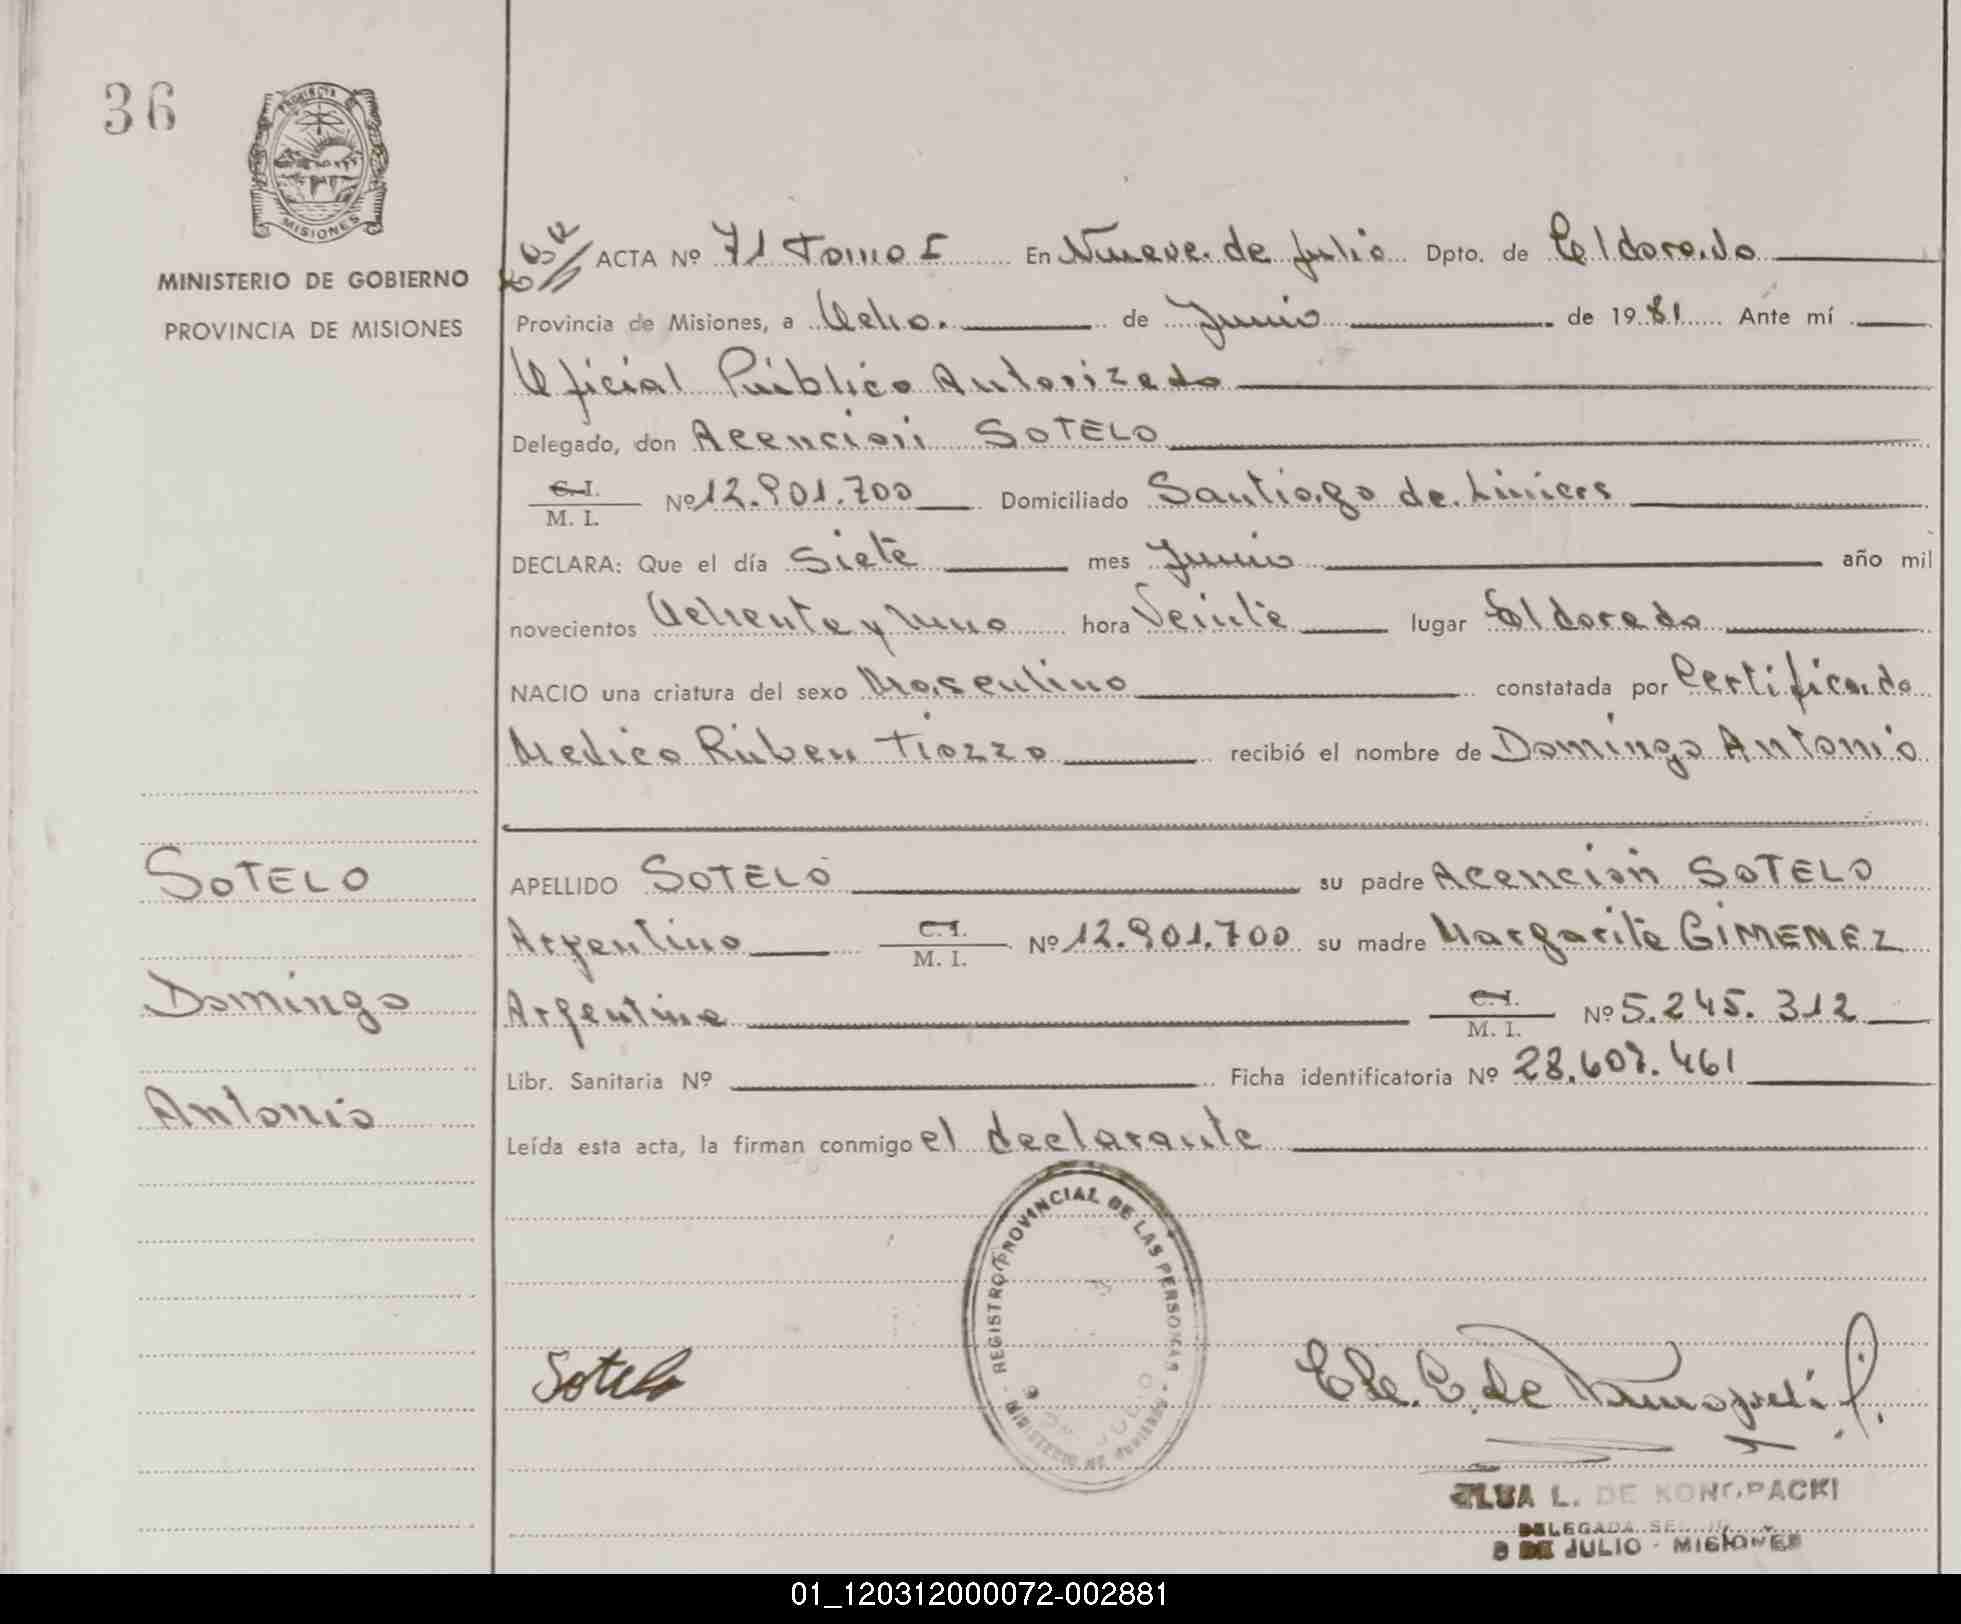 36
PROVINCIA DE
MISIONES
MINISTERIO DE GOBIERNO
PROVINCIA DE MISIONES
ACTA Nº 71 Tomo I En Nueve de Julio Dpto. de Eldorado
Provincia de Misiones, a Ocho. de Junio de 1981 Ante mí
Oficial Público Autorizado
Delegado, don Acención SOTELO
C.I. / M. I. Nº 12.901.700 Domiciliado Santiago de Liniers
DECLARA: Que el día Siete mes Junio año mil
novecientos Ochenta y Uno hora Veinte lugar Eldorado
NACIO una criatura del sexo Masculino constatada por Certificado
Medico Rúben Tiozzo recibió el nombre de Domingo Antonio
SOTELO
Domingo
Antonio
APELLIDO SOTELO su padre Acención SOTELO
Argentino C.I. / M. I. Nº 12.901.700 su madre Margarita GIMENEZ
Argentina C.I. / M. I. Nº 5.245.312
Libr. Sanitaria Nº Ficha identificatoria Nº 28.607.461
Leída esta acta, la firman conmigo el declarante
REGISTRO PROVINCIAL DE LAS PERSONAS
MINISTERIO DE GOBIERNO
9 DE JULIO
Sotelo
L. DE KONOPACKI
DELEGADA
9 DE JULIO - MISIONES
01_120312000072-002881